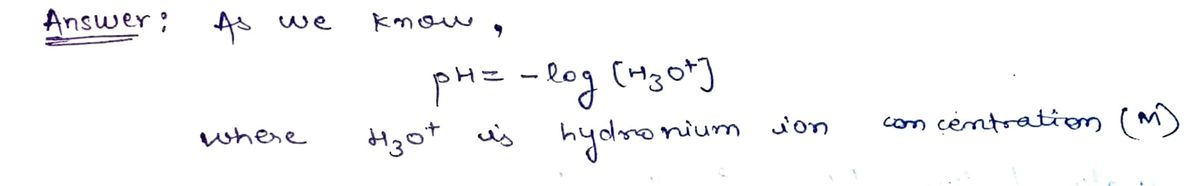 Answer: As we know,
pH = -log [H₃O⁺]
where H₃O⁺ is hydronium ion concentration (M)